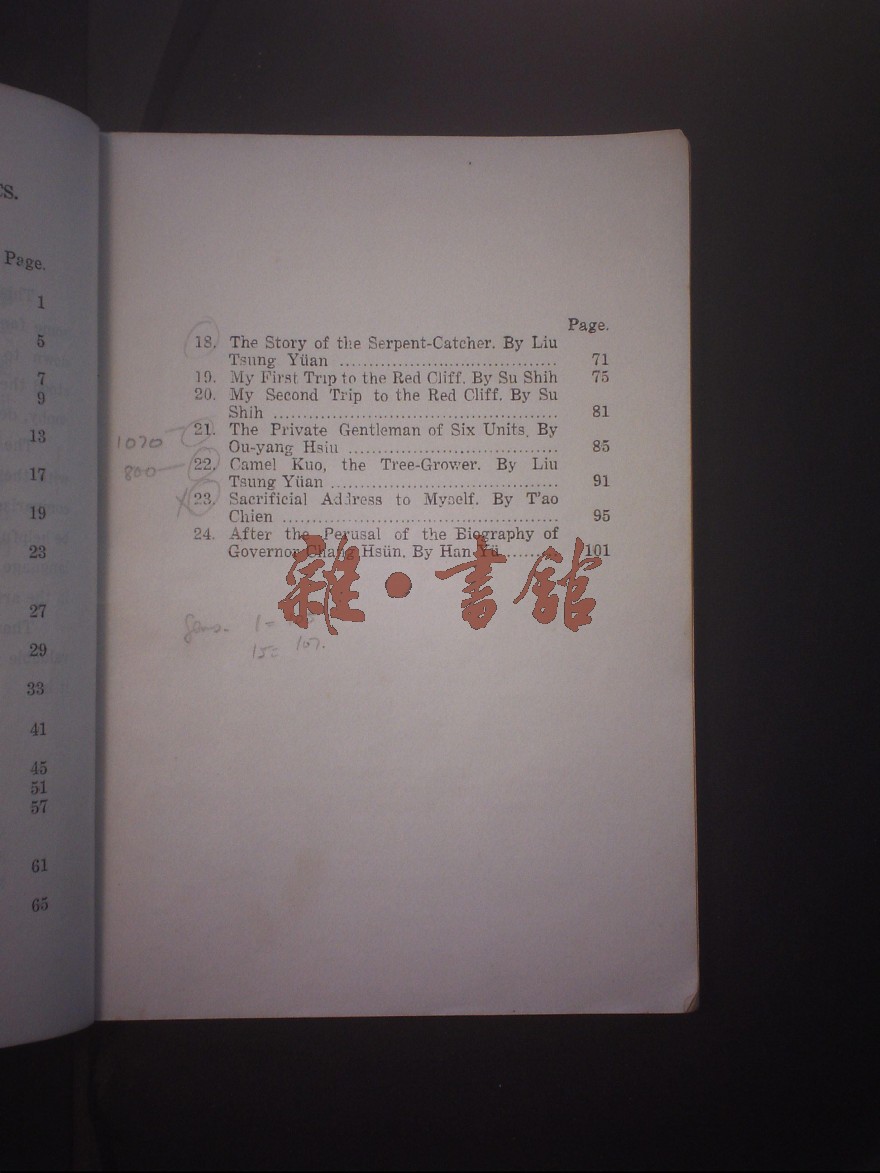 TS.
Page.
1
5
7
9
13
17
19
23
27
29
33
41
45
51
57
61
65
Page.
18. The Story of the Serpent-Catcher. By Liu
Tsung Yüan ..................................... 71
19. My First Trip to the Red Cliff. By Su Shih 75
20. My Second Trip to the Red Cliff. By Su
Shih ................................................ 81
1070
21. The Private Gentleman of Six Units. By
Ou-yang Hsiu .................................... 85
800
22. Camel Kuo, the Tree-Grower. By Liu
Tsung Yüan ....................................... 91
23. Sacrificial Address to Myself. By T'ao
Chien ............................................... 95
24. After the Perusal of the Biography of
Governor Chang Hsün. By Han Yü .......... 101
雜·書館
1=
15= 107.